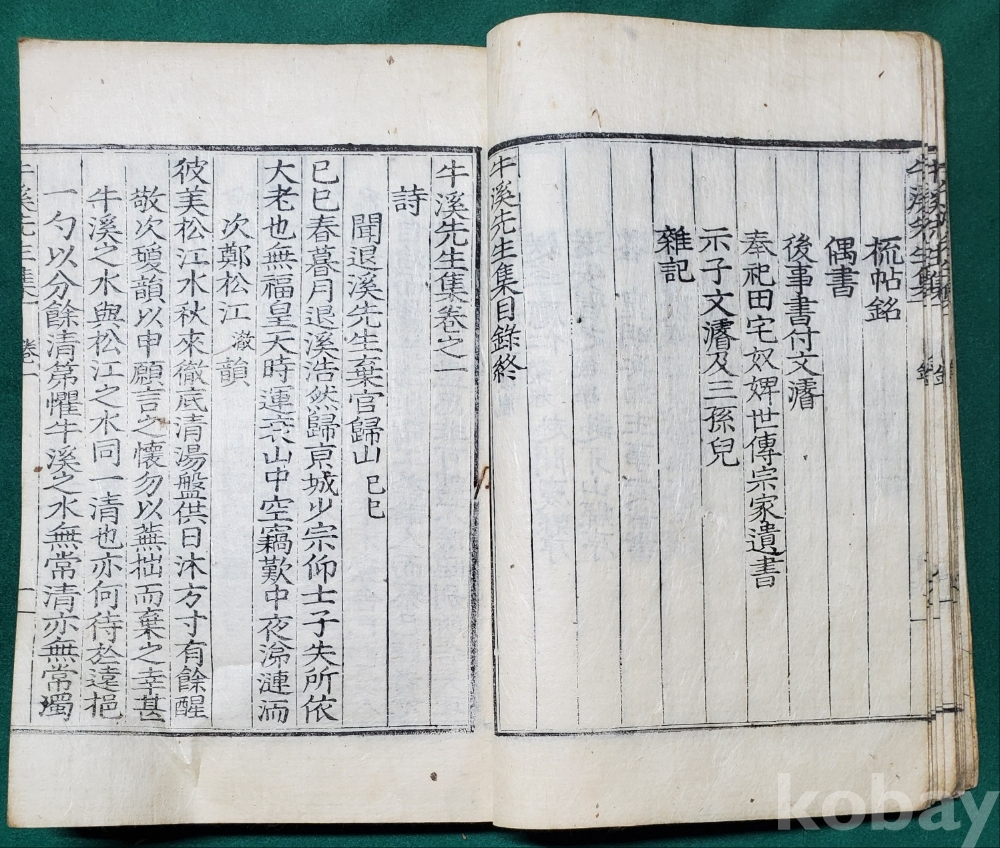 梳帖銘
偶書
後事書付文濬
奉祀田宅奴婢世傳宗家遺書
示子文濬及三孫兒
雜記
牛溪先生集目錄終
牛溪先生集卷之一
詩
聞退溪先生棄官歸山 己巳
己巳春暮月退溪浩然歸京城少宗仰士子失所依
大老也無福皇天時運衰山中空竊歎中夜涕漣洏
次鄭松江 澈 韻
彼美松江水秋來徹底清湯盤供日沐方寸有餘醒
敬次璦韻以申願言之懷勿以蕪拙而棄之幸甚
牛溪之水與松江之水同一清也亦何待於遠挹
一勺以分餘清第懼牛溪之水無常清亦無常濁
牛溪先生集 卷一 一
kobay